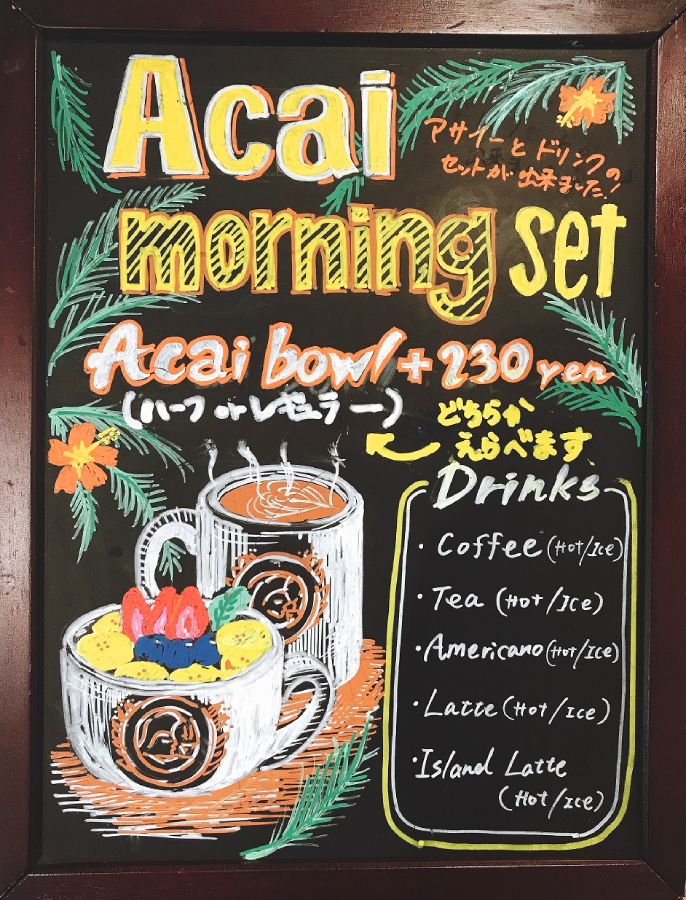 Acai
アサイーとドリンクの
セットが出来ました!
morning set
Acai bowl + 230 yen
(ハーフ or レギュラー)
どちらか
えらべます
Drinks
・Coffee (Hot/Ice)
・Tea (Hot/Ice)
・Americano (Hot/Ice)
・Latte (Hot/Ice)
・Island Latte
(Hot/Ice)